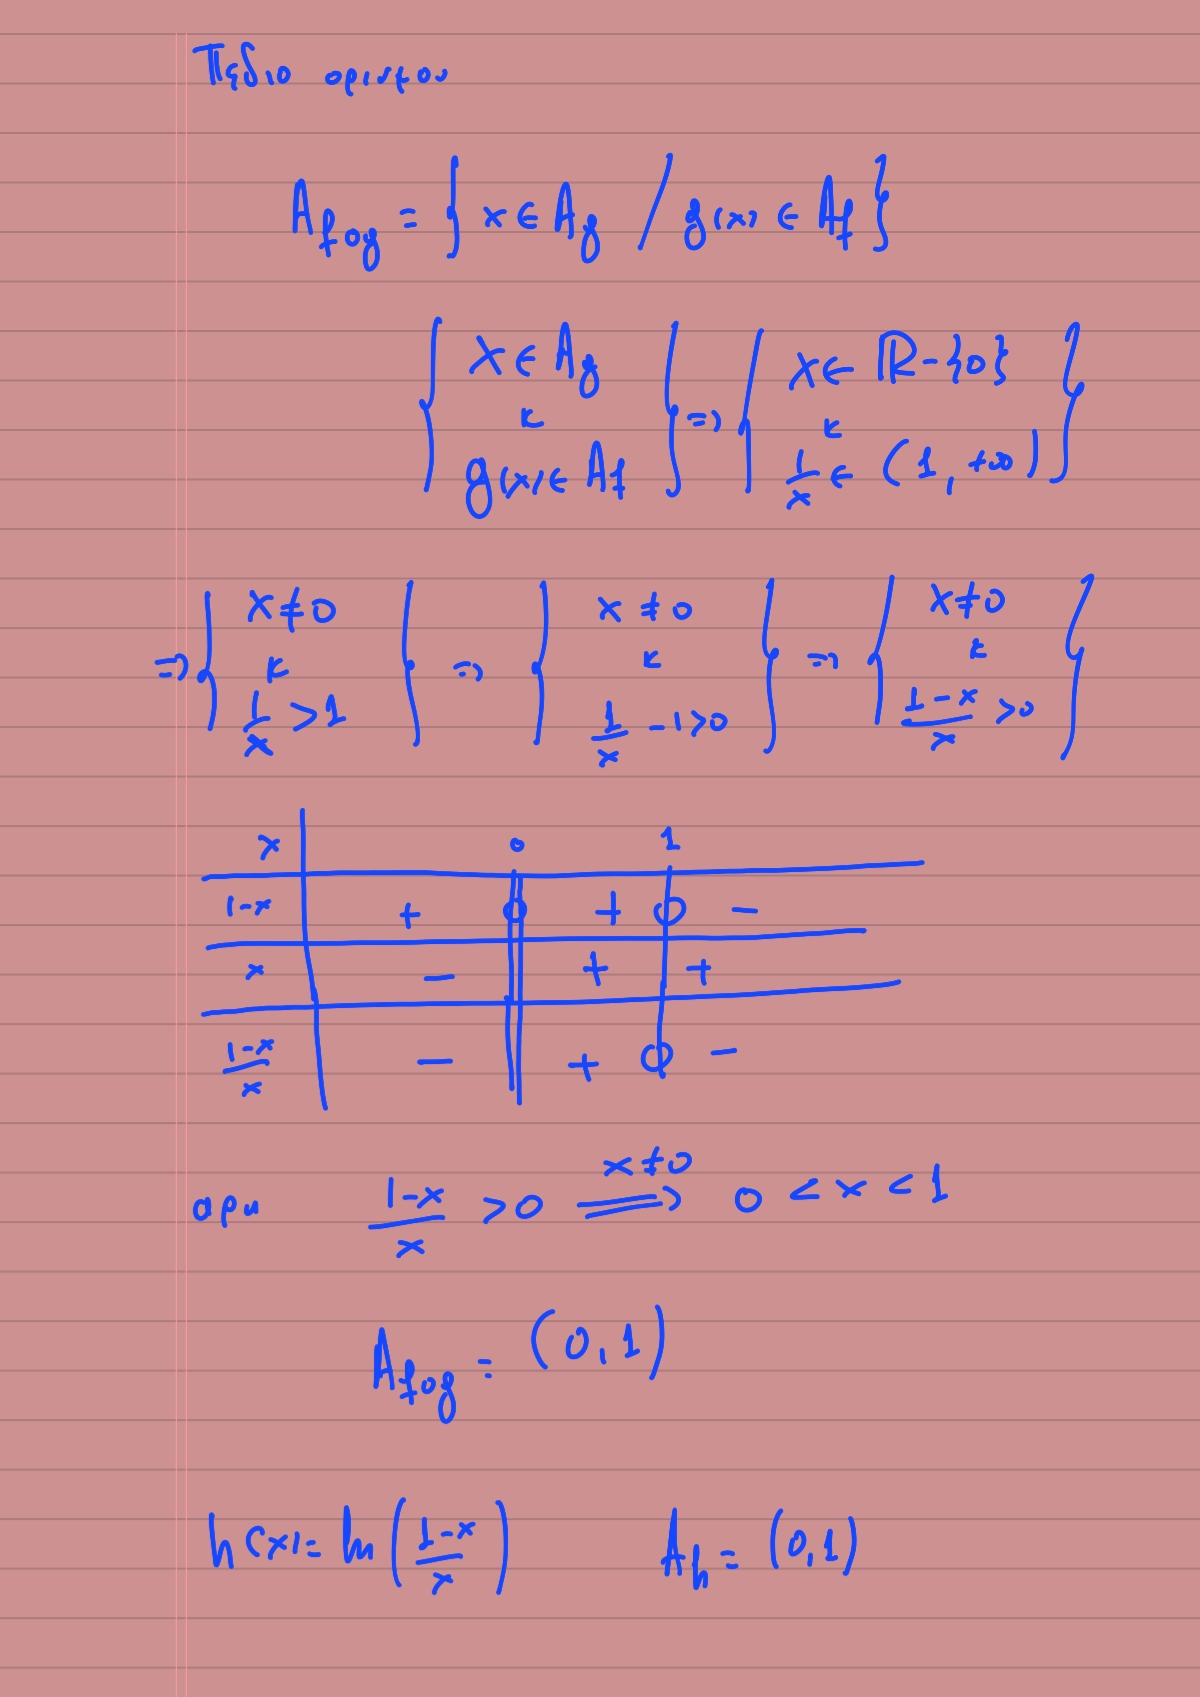 Πεδιο ορισμου
A_{fog} = { x ∈ A_g / g(x) ∈ A_f }
{ x ∈ A_g κ g(x) ∈ A_f } => { x ∈ ℝ-{0} κ 1/x ∈ (1, +∞) }
=> { x ≠ 0 κ 1/x > 1 } => { x ≠ 0 κ 1/x - 1 > 0 } => { x ≠ 0 κ (1-x)/x > 0 }
x 0 1
1-x + 0 + 0 -
x - + +
(1-x)/x - + 0 -
αρα (1-x)/x > 0 x≠0 => 0 < x < 1
A_{fog} = (0, 1)
h(x) = ln((1-x)/x) A_h = (0, 1)